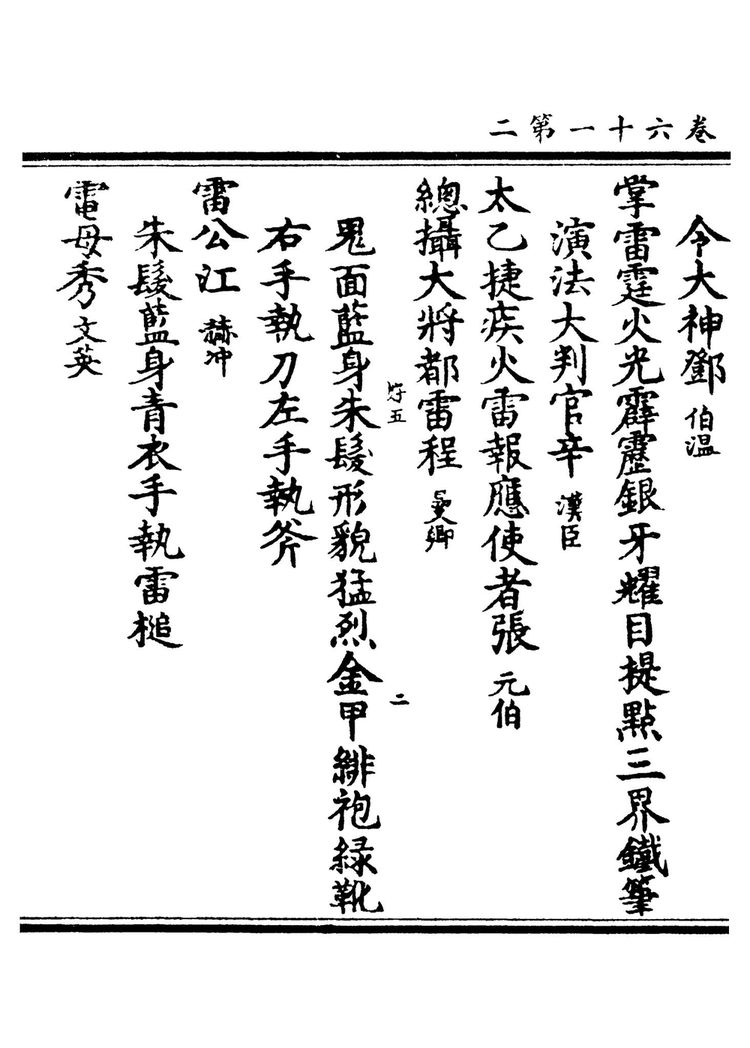 卷六十一第二
令大神鄧伯溫
掌雷霆火光霹靂銀牙耀目提點三界鐵筆
演法大判官辛漢臣
太乙捷疾火雷報應使者張元伯
總攝大將都雷程卿
五 二
鬼面藍身朱髮形貌猛烈金甲緋袍綠靴
右手執刀左手執斧
雷公江赫冲
朱髮藍身青衣手執雷槌
電母秀文英